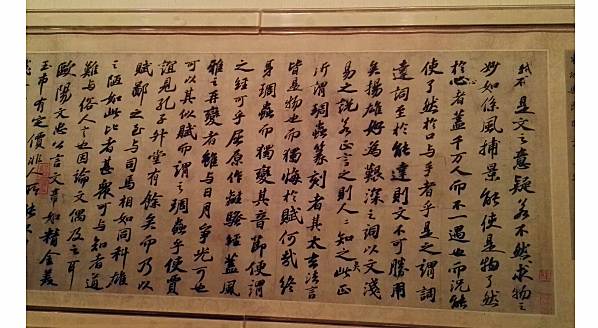 不是文之意疑若不然求物之
妙如係風捕景能使是物了然
於心者蓋千万人而不一遇也而況能
使了然於口与手者乎是之謂詞
達詞至於能達則文不可勝用
矣揚雄好為艱深之詞以文淺
易之說若正言之則人人知之矣此正
所謂琱蟲篆刻者其太玄法言
皆是物也而獨悔於賦何哉終
身琱蟲而獨變其音節便謂
之經可乎屈原作離騷經蓋風
雅之再變者雖与日月爭光可也
可以其似賦而謂之琱蟲乎使賈
誼見孔子升堂有餘矣而乃以
賦鄙之至与司馬相如同科雄
之陋如此比者甚眾可与知者道
難与俗人言也因論文偶及之耳
歐陽文忠公言文章如精金美
玉市有定價非人所